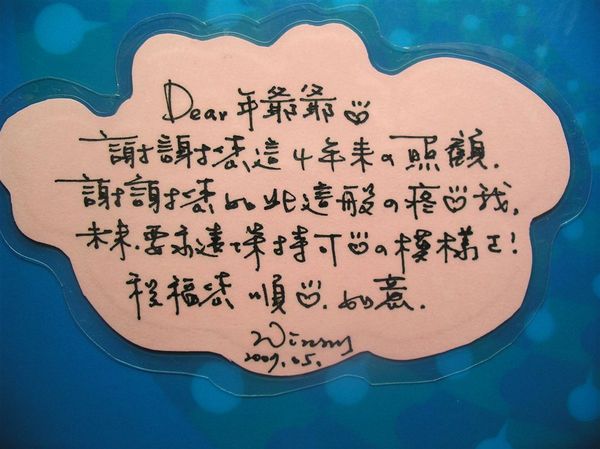 Dear 年爺爺♡
謝謝您這4年來の照顧.
謝謝您如此這般の疼♡我,
未來.要永遠保持可♡の模樣ㄛ!
祝福您 順♡.如意.
Winny
2009.05.